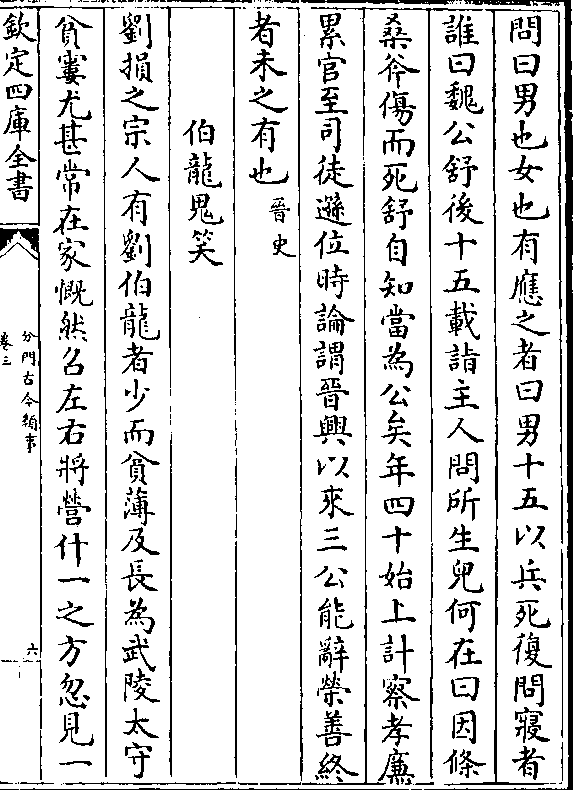 問曰男也女也有應之者曰男十五以兵死復問寢者
誰曰魏公舒後十五載詣主人問所生兒何在曰因條
桑斧傷而死舒自知當為公矣年四十始上計察孝廉
累官至司徒遜位時論謂晉興以來三公能辭榮善終
者未之有也晉史
伯龍鬼笑
劉損之宗人有劉伯龍者少而貧薄及長為武陵太守
貧窶尤甚常在家慨然召左右將營什一之方忽見一
欽定四庫全書
分門古今類事
卷三
六